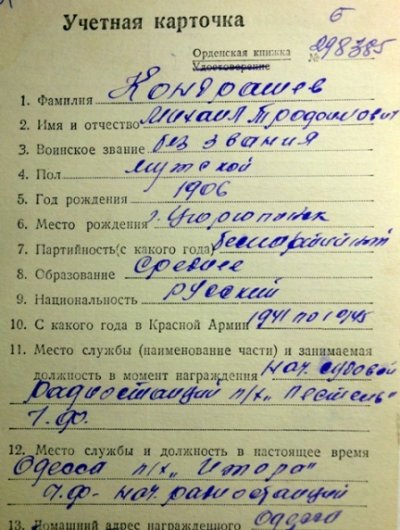 Учетная карточка
Б
Орденская книжка
Удостоверение
№ 298385
1. Фамилия Кондрашев
2. Имя и отчество Михаил Трофимович
3. Воинское звание без звания
4. Пол мужской
5. Год рождения 1906
6. Место рождения г. Урюпинск
7. Партийность (с какого года) беспартийный
8. Образование среднее
9. Национальность русский
10. С какого года в Красной Армии 1941 по 1945
11. Место службы (наименование части) и занимаемая
должность в момент награждения нач. судовой
радиостанции п/х „Пестель"
ч.ф.
12. Место службы и должность в настоящее время
Одесса п/х
ч.ф. нач. радиостанции
13. Домашний адрес награжденного Одесса